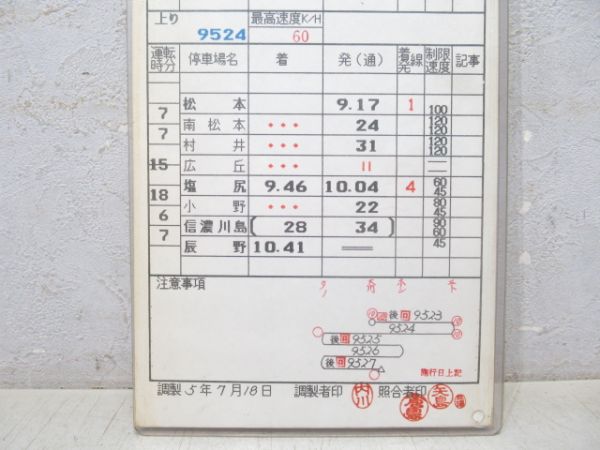 上り 最高速度K/H
9524 60
運転時分 停車場名 着 発(通) 着発線 制限速度 記事
松本 9.17 1 100
7
南松本 ・・・ 24 120 120
7
村井 ・・・ 31 120 120
広丘 ・・・ 〃
15
塩尻 9.46 10.04 4 60 45
18
小野 ・・・ 22 80 45
6
信濃川島 [28 34] 90 60
7
辰野 10.41 === 45
注意事項
後 回 9523
9524
後 回 9525
9526
後 回 9527
施行日上記
調製 5年7月18日 調製者印 内川 照合者印 矢島